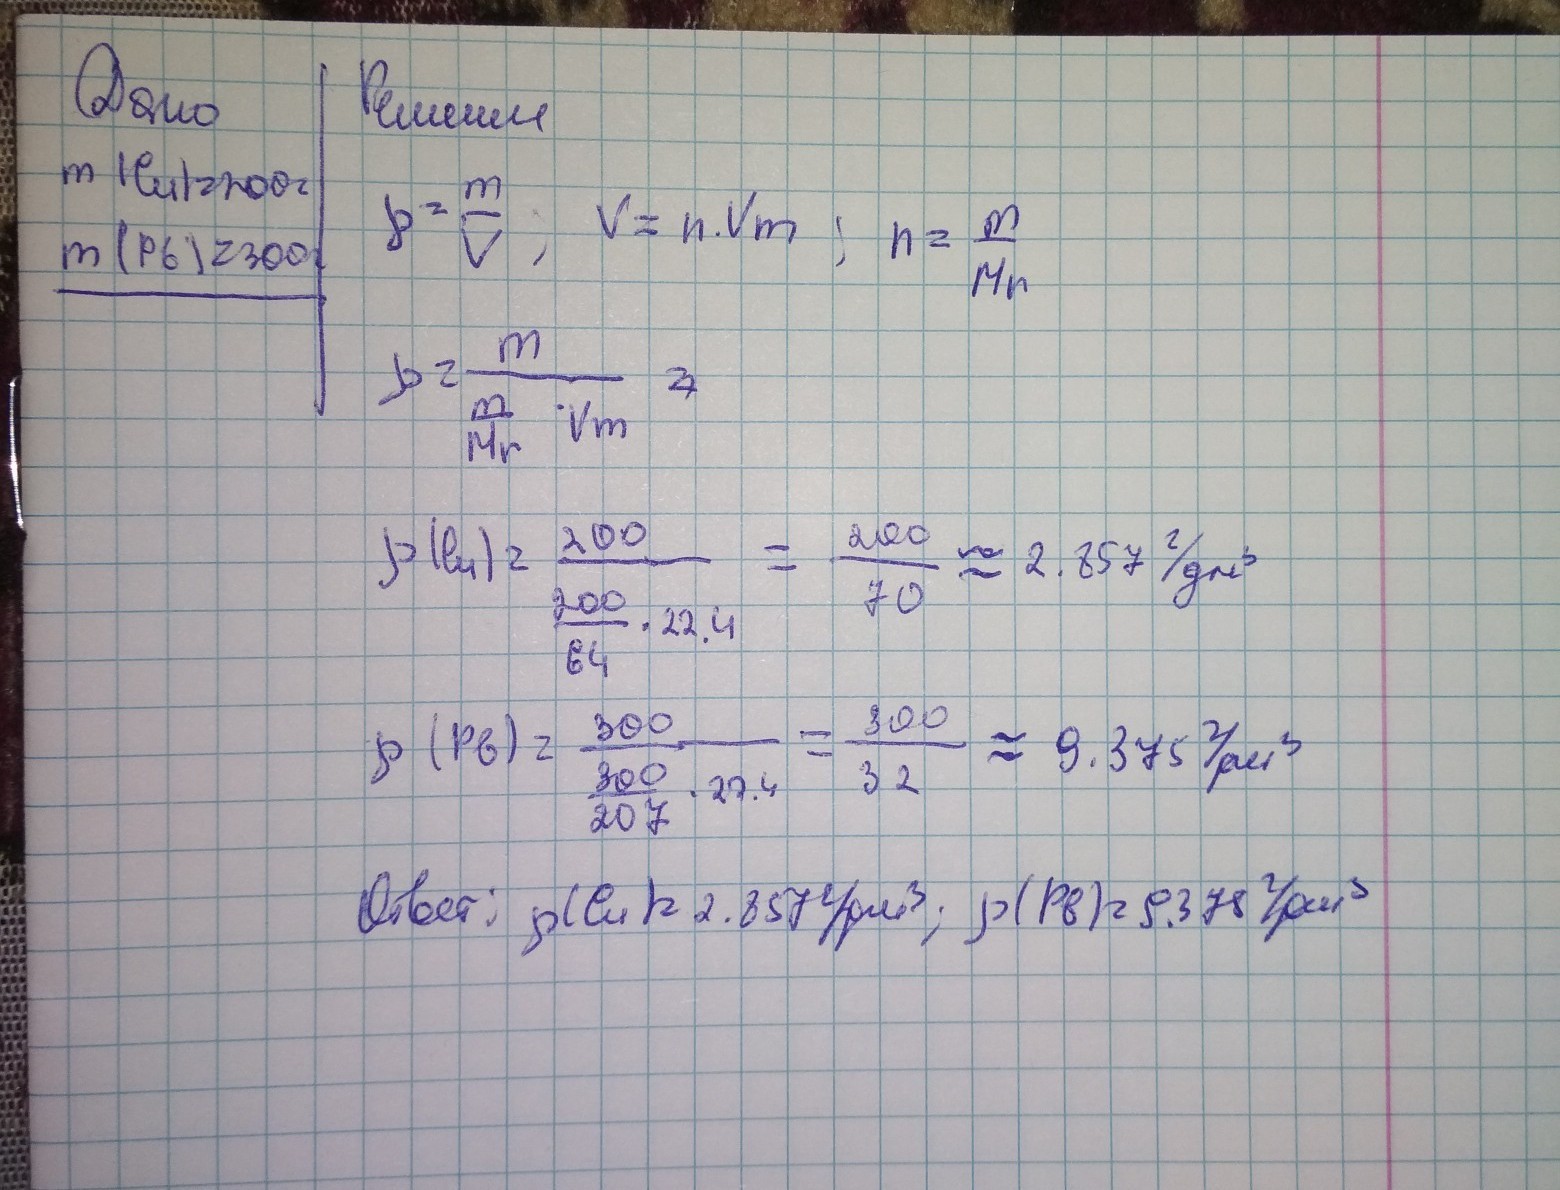 Дано
m(Cu)=200г
m(Pb)=300г
Решение
ρ=m/V; V=n.Vm; n=m/Mr
ρ=m/(m/Mr ·Vm) =
ρ(Cu)=200/(200/64 · 22.4) = 200/70 ≈ 2.857 г/дм³
ρ(Pb)=300/(300/207 · 22.4) = 300/32 ≈ 9.375 г/дм³
Ответ: ρ(Cu)=2.857г/дм³; ρ(Pb)=9.375 г/дм³